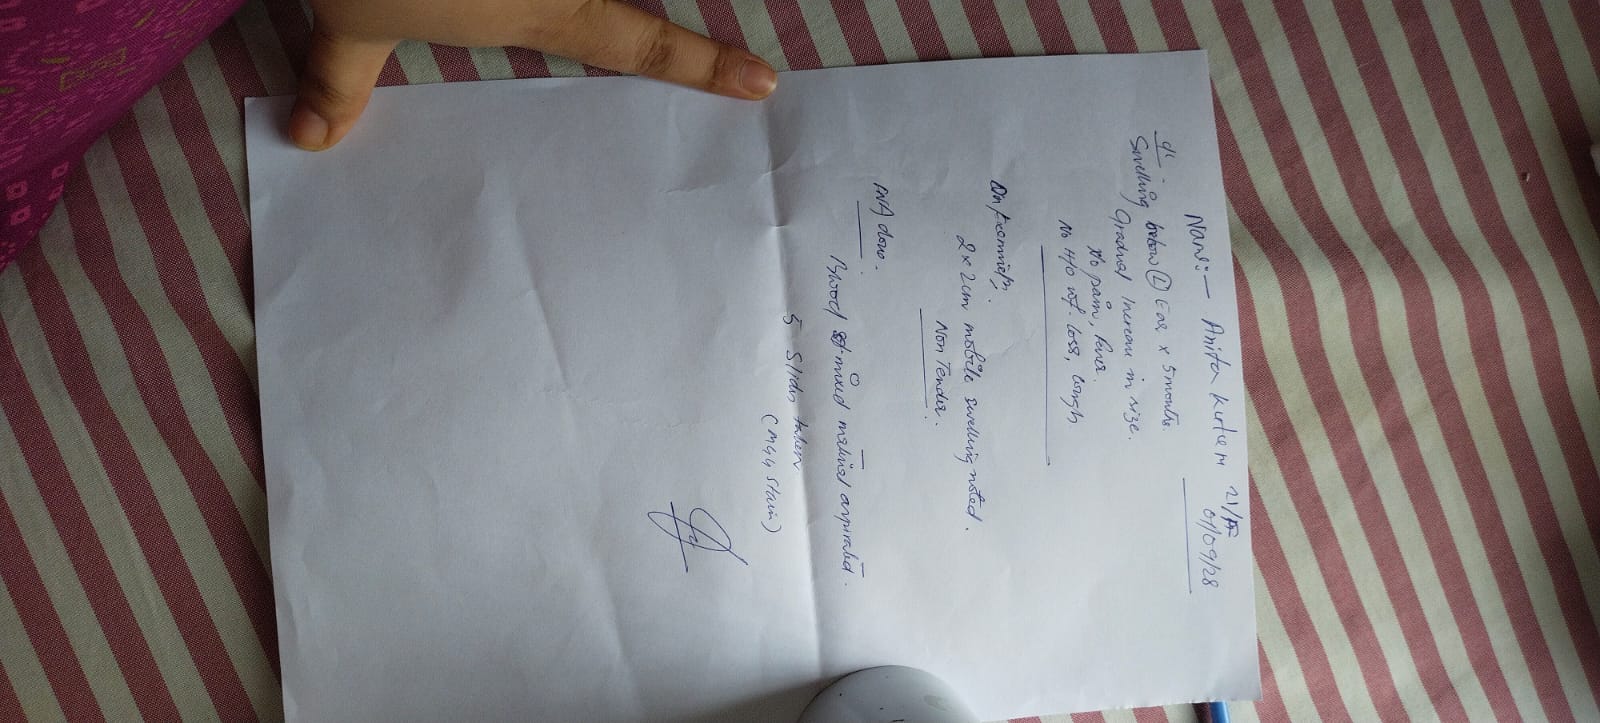 Name:- Anita 21/F
01/09/28
c/
Swelling below (L) Ear x 5 months.
Gradual Increase in size.
No pain, fever.
No H/O wt. loss, cough
On Examinatn:
2x2cm mobile swelling noted.
Non Tender.
FNA done:
Blood mixed material aspirated.
5 Slides taken
(MGG stain)